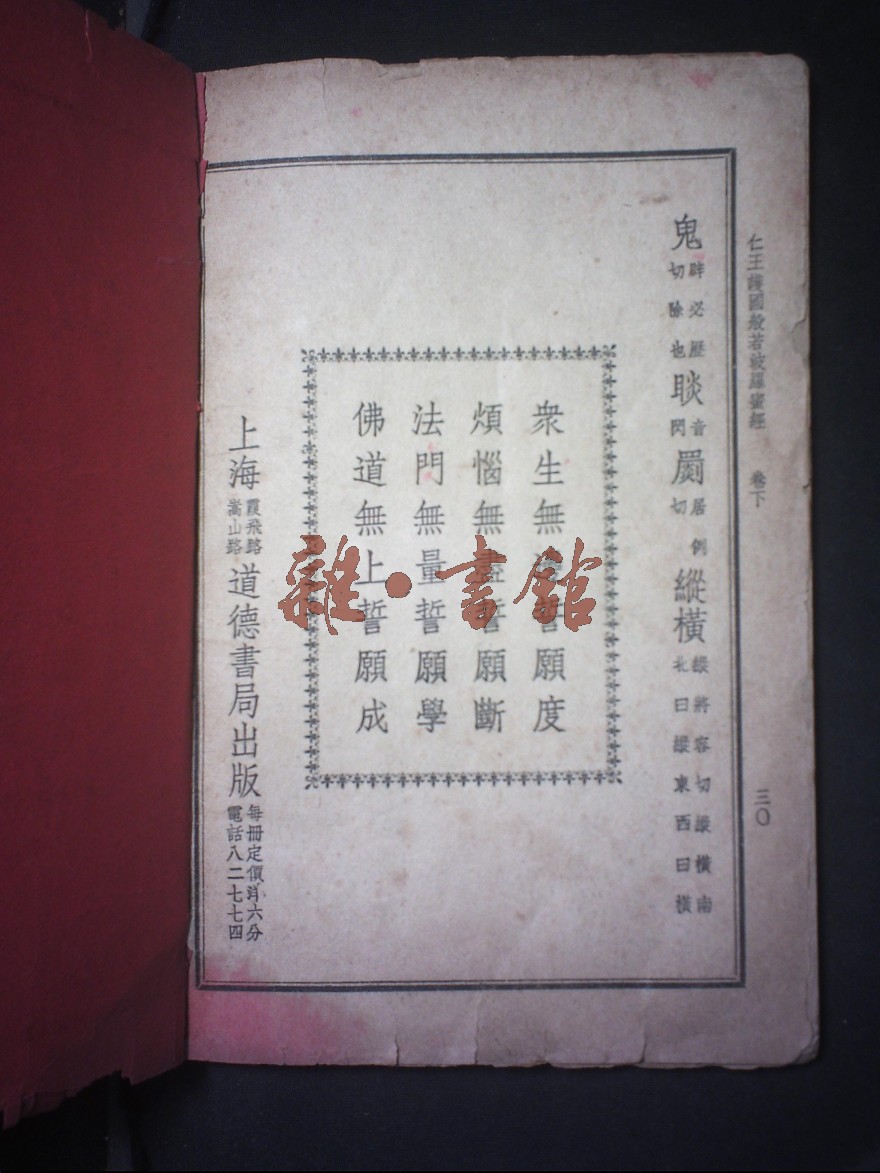 仁王護國般若波羅蜜經 卷下 三〇
鬼 辟必歷切除也 睒 音閃 罽 居例切 縱橫 縱將容切縱橫南北曰縱東西曰橫
眾生無邊誓願度
煩惱無盡誓願斷
法門無量誓願學
佛道無上誓願成
上海 霞飛路嵩山路 道德書局出版 每冊定價洋六分 電話八二七七四
雜·書館